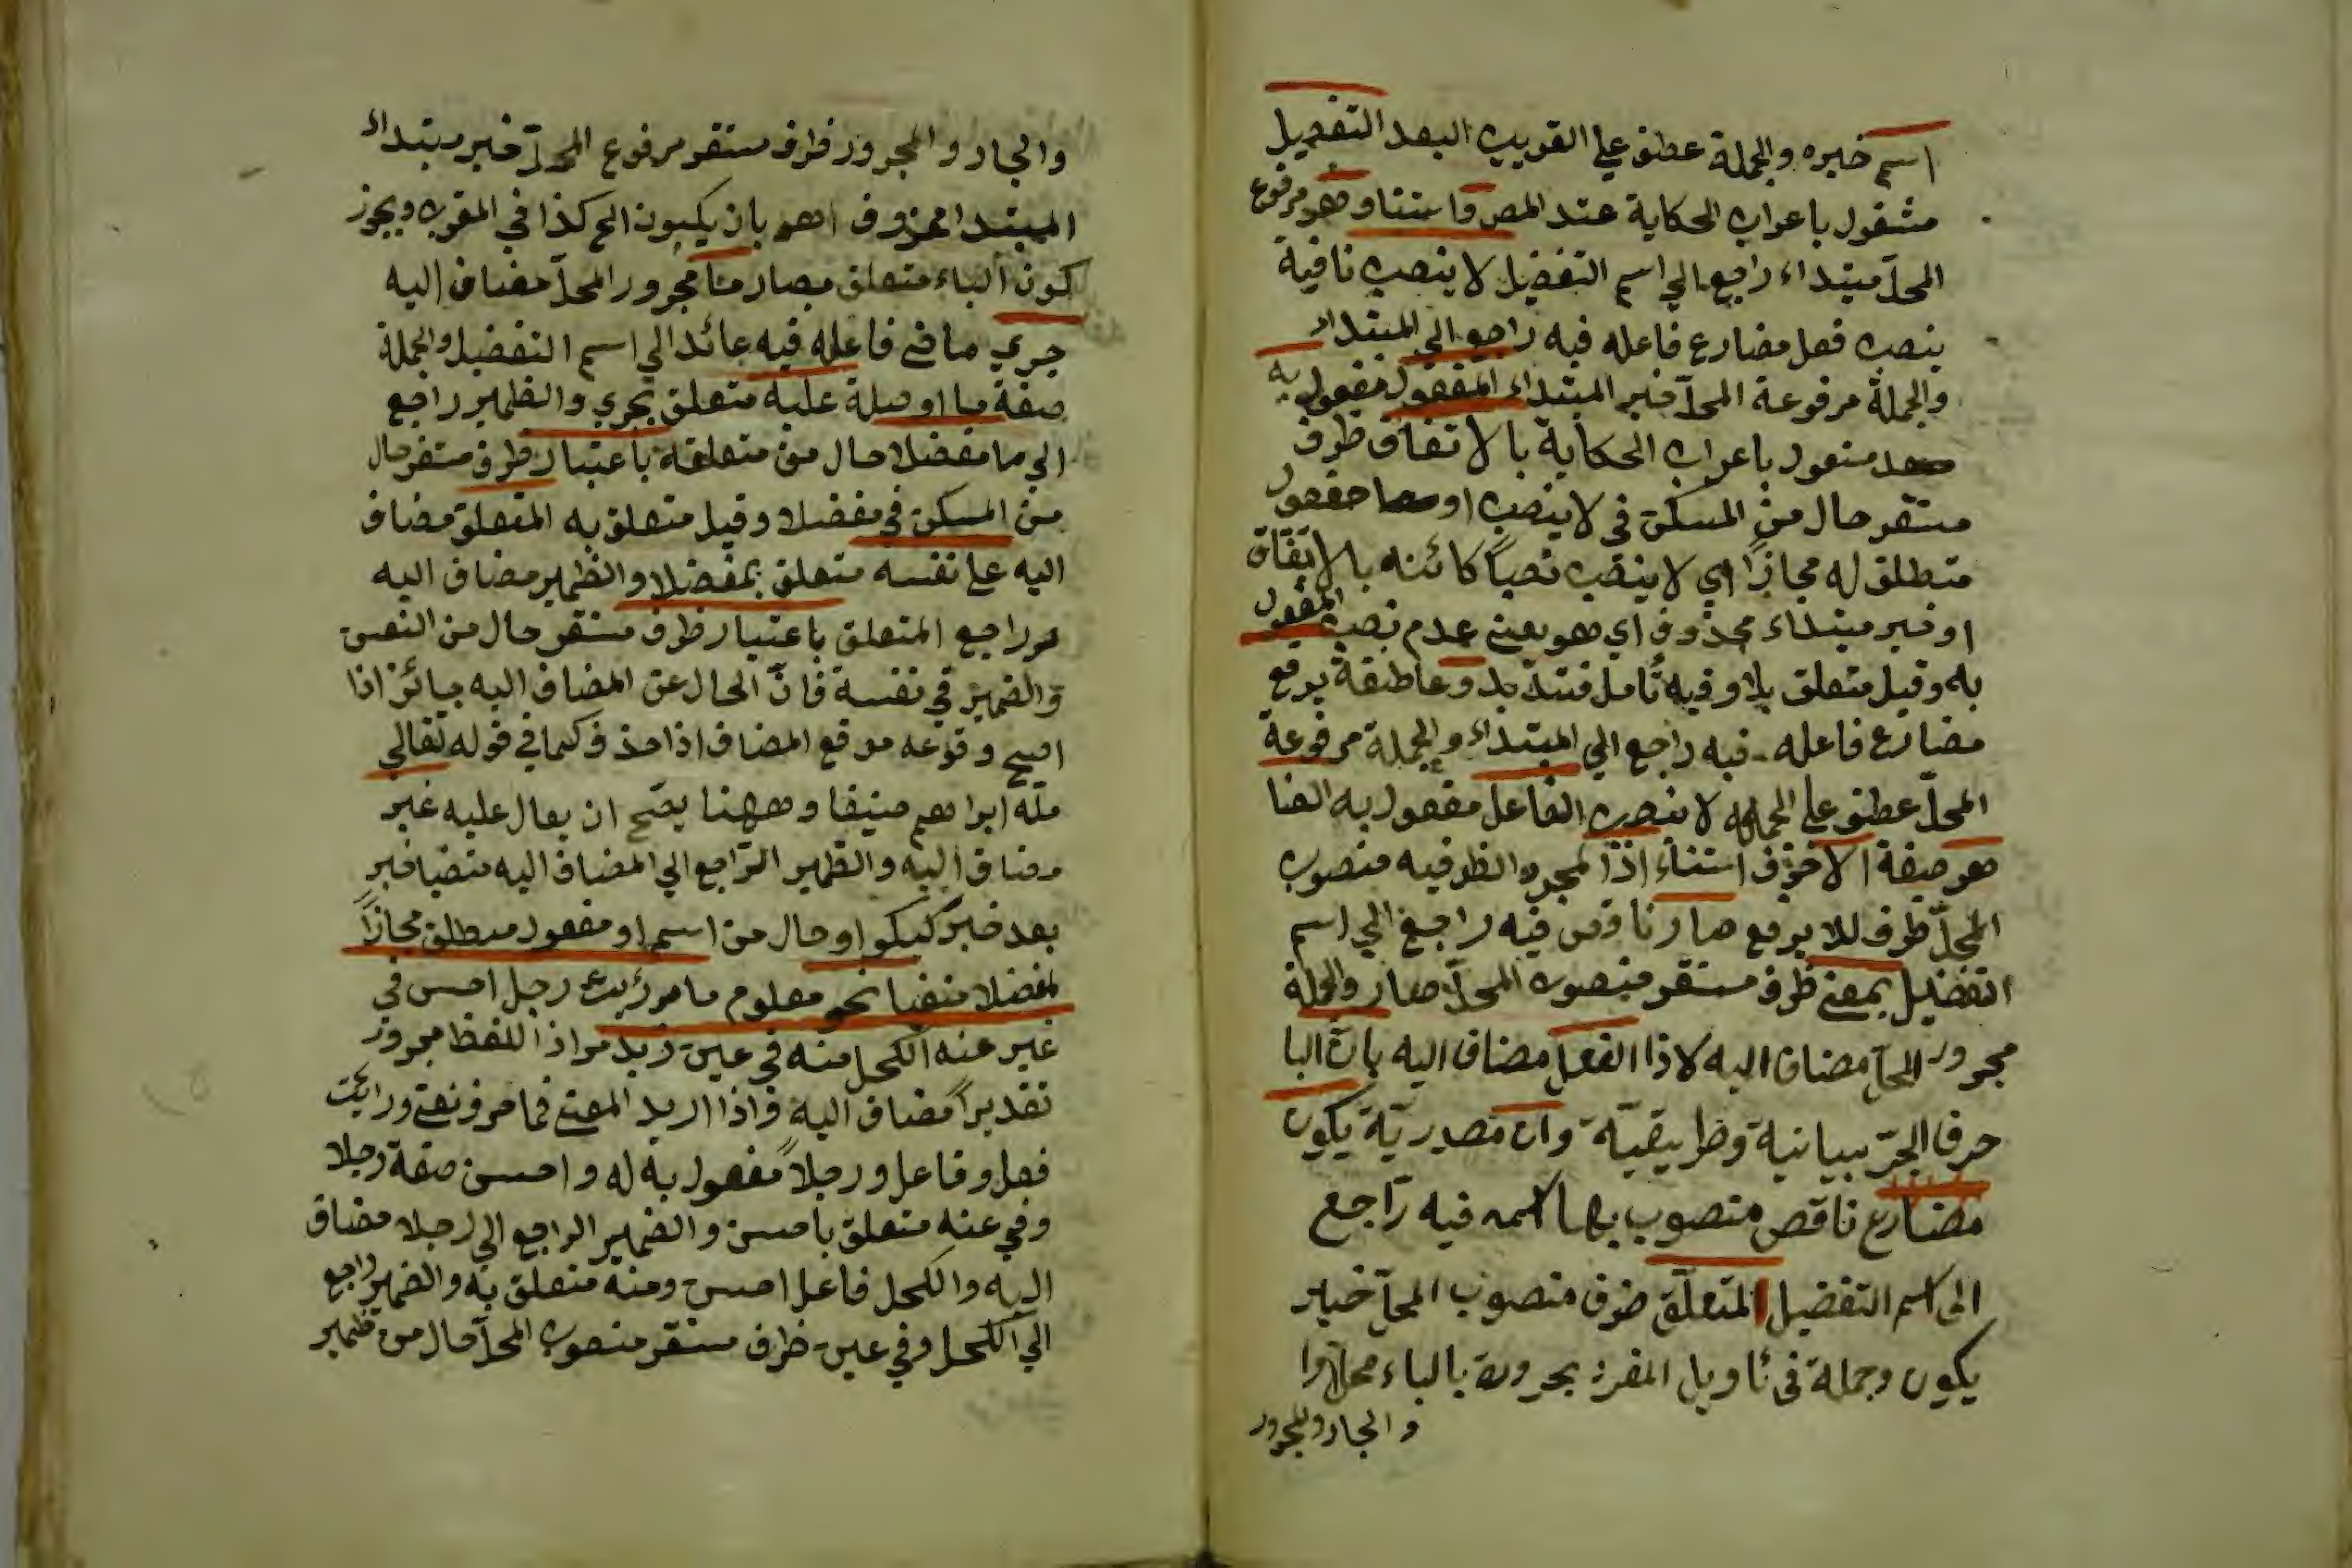 اسم خبره والجملة عطف على القريب البعد التفضيل
مشغول باعراب الحكاية عند المص واستثنا وهو مرفوع
المحل مبتداء راجع الي اسم التفضيل لا ينصب نافية
ينصب فعل مضارع فاعله فيه راجع الي المبتداء
والجملة مرفوعة المحل خبر المبتداء المفعول مفعول به
مشغول باعراب الحكاية بالاتفاق ظرف
مستقر حال من المسكن في لا ينصب او مفعول
متطلق له مجازا اي لا ينصب نصبا كائنه بالاتفاق
او خبر مبتداء محذوف اي هو يعنى عدم نصب المفعول
به وقيل متعلق بلا وفيه تامل فتدبد وعاطفة يرفع
مضارع فاعله فيه راجع الي المبتداء والجملة مرفوعة
المحل عطف على الجملة لا ينصب الفاعل مفعول به الفنا
هو صيغة الاخوف استثناء اذا لمجرد الظرفيه منصوب
المحل ظرف للا يرفع صار ناقص فيه راجع الي اسم
التفضيل بمعنى ظرف مستقر منصوب المحل صار والجملة
مجرور المحل مضاف اليه لاذا الفعل مضاف اليه بان البا
حرف الجر بيانية وظريقية وان مصدرية يكون
مضارع ناقص منصوب بها اسمه فيه راجع
الى اسم التفضيل المتعلق ظرف منصوب المحل خبر
يكون وجملة في تاويل المفرد مجرورة بالباء محلا
والجار والمجرور
والجار والمجرور ظرف مستقر مرفوع المحل خبر مبتداء
المبتدا محذوف اهو بان يكون الح كذا في المقرب ويجوز
كون الباء متعلق بصار ما مجرور المحل مضاف اليه
جري ماض فاعله فيه عائد الي اسم التفضيل والجملة
صفة ما او صلة عليه متعلق بجري والظمير راجع
الي ما مفضلا حال من متعلقه باعتبار ظرف مستقر حال
من المسكن في مفضلا وقيل متعلق به المتعلق مضاف
اليه على نفسه متعلق بمفضلا والظمير مضاف اليه
وراجع المتعلق باعتبار ظرف مستقر حال من النفس
والضمير في نفسه فان الحال عن المضاف اليه جائز اذا
اصح وقوعه موقع المضاف اذا حذف كما في قوله تعالي
ملة ابراهيم حنيفا وههنا يصح ان يقال عليه غير
مضاف اليه والظمير الراجع الي المضاف اليه منفيا خبر
بعد خبر كيكو او حال من اسم او مفعول مطلق مجازا
لمفضلا منفيا نحو معلوم ما مررايت رجل احسن في
غير عنه الكحل منه في عين زيد مراد اللفظ مجرور
تقديرا مضاف اليه واذا اريد المعنى فما حرف نفى ورايت
فعل وفاعل ورجلا مفعول به له واحسن صفة رجلا
وفي عنه متعلق باحسن والضمير الراجع الي رجلا مضاف
اليه والكحل فاعل احسن ومنه متعلق به والضمير راجع
الي الكحل وفي عين ظرف مستقر منصوب المحل حال من ظمير